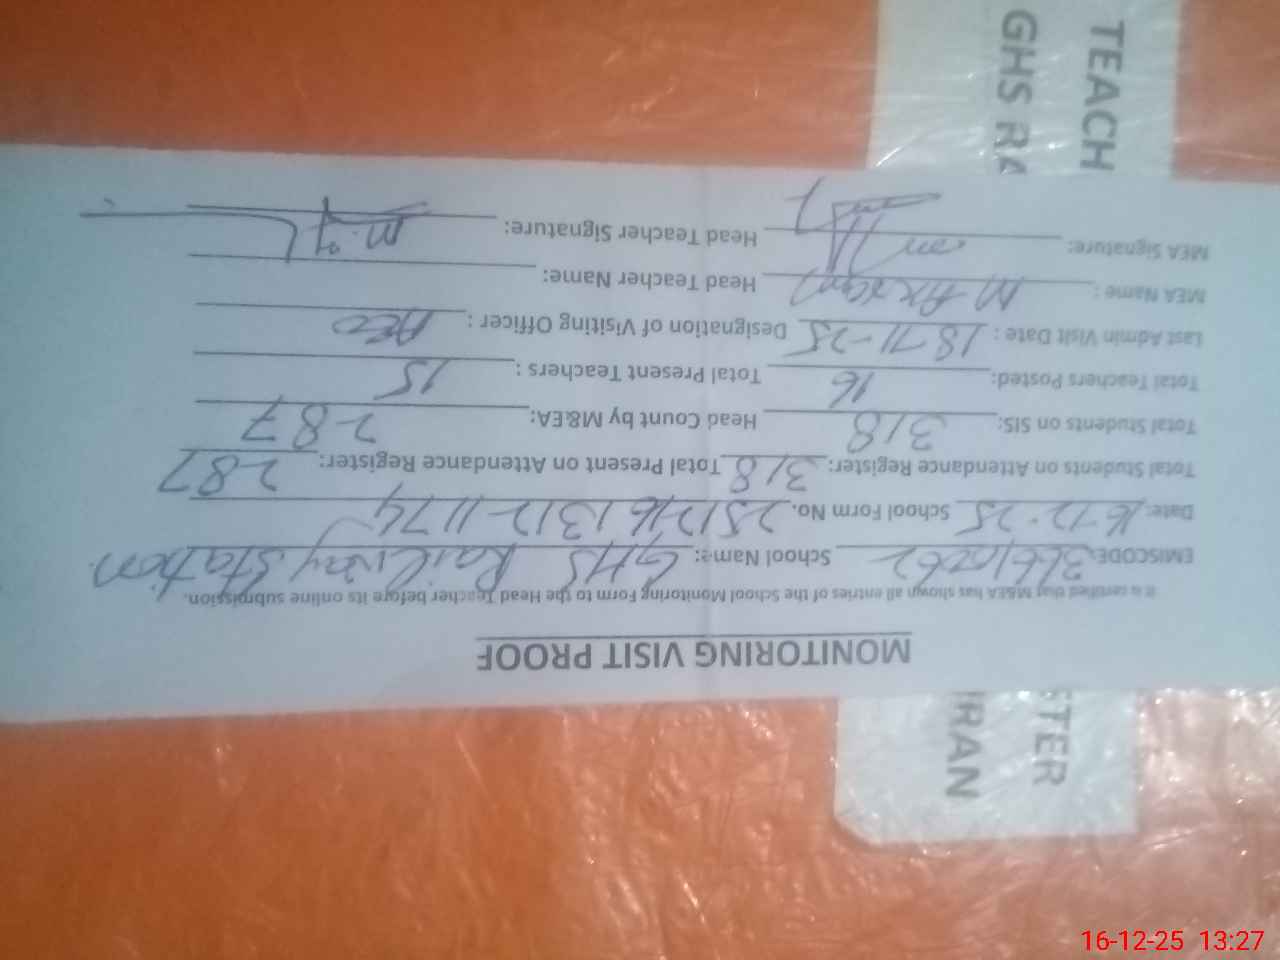 MONITORING VISIT PROOF
It is certified that M&EA has shown all entries of the School Monitoring Form to the Head Teacher before its online submission.
EMISCODE: School Name: GHS Railway Station
Date: 16-12-25 School Form No. 251216131211174
Total Students on Attendance Register: 318 Total Present on Attendance Register: 287
Total Students on SIS: 318 Head Count by M&EA: 287
Total Teachers Posted: 16 Total Present Teachers : 15
Last Admin Visit Date : 18-11-25 Designation of Visiting Officer : AEO
MEA Name : M Akram Head Teacher Name:
MEA Signature: Head Teacher Signature:
TEACH
GHS RA
ETER
IRAN
16-12-25 13:27